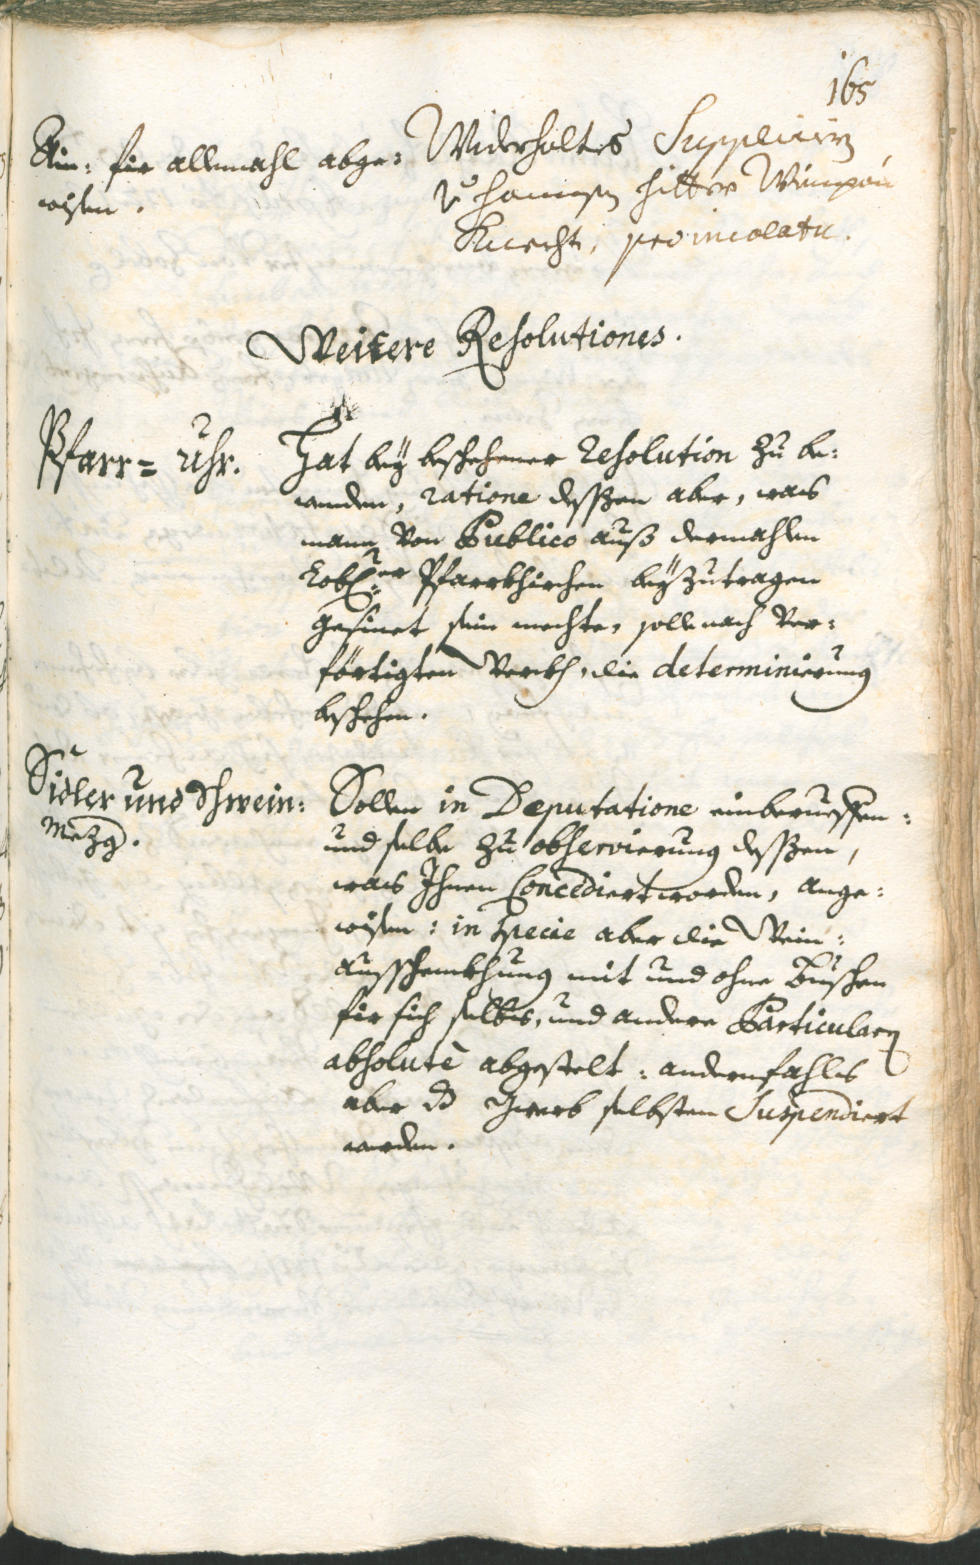 165
Ain: für allemahl abge:
wisen.
Widerholtes Supplicirn
Hannsen hitter
Knecht, pro incolatu.
Weitere Resolutiones.
Pfarr= Uhr.
Hat bey beschehener Resolution zu be:
wenden, ratione dessen aber, was
mann von Publico auß dermahlen
Lobl:er Pfarrkhirchen beyzutragen
gesinet sein mechte, solle nach ver:
förtigten Werkh, die determinierung
beschehen.
Sidler und Schwein:
Mezg.
Sollen in Deputatione einberueffen:
und selbe zu observierung dessen,
was Ihnen Concediert worden, ange:
wisen: in specie aber die Wein:
Ausschenkhung mit und ohne Buschen
für sich selbs, und andere Particularn
absolutè abgestelt: andernfahls
aber dd Gwerb selbsten Suspendiert
werden.